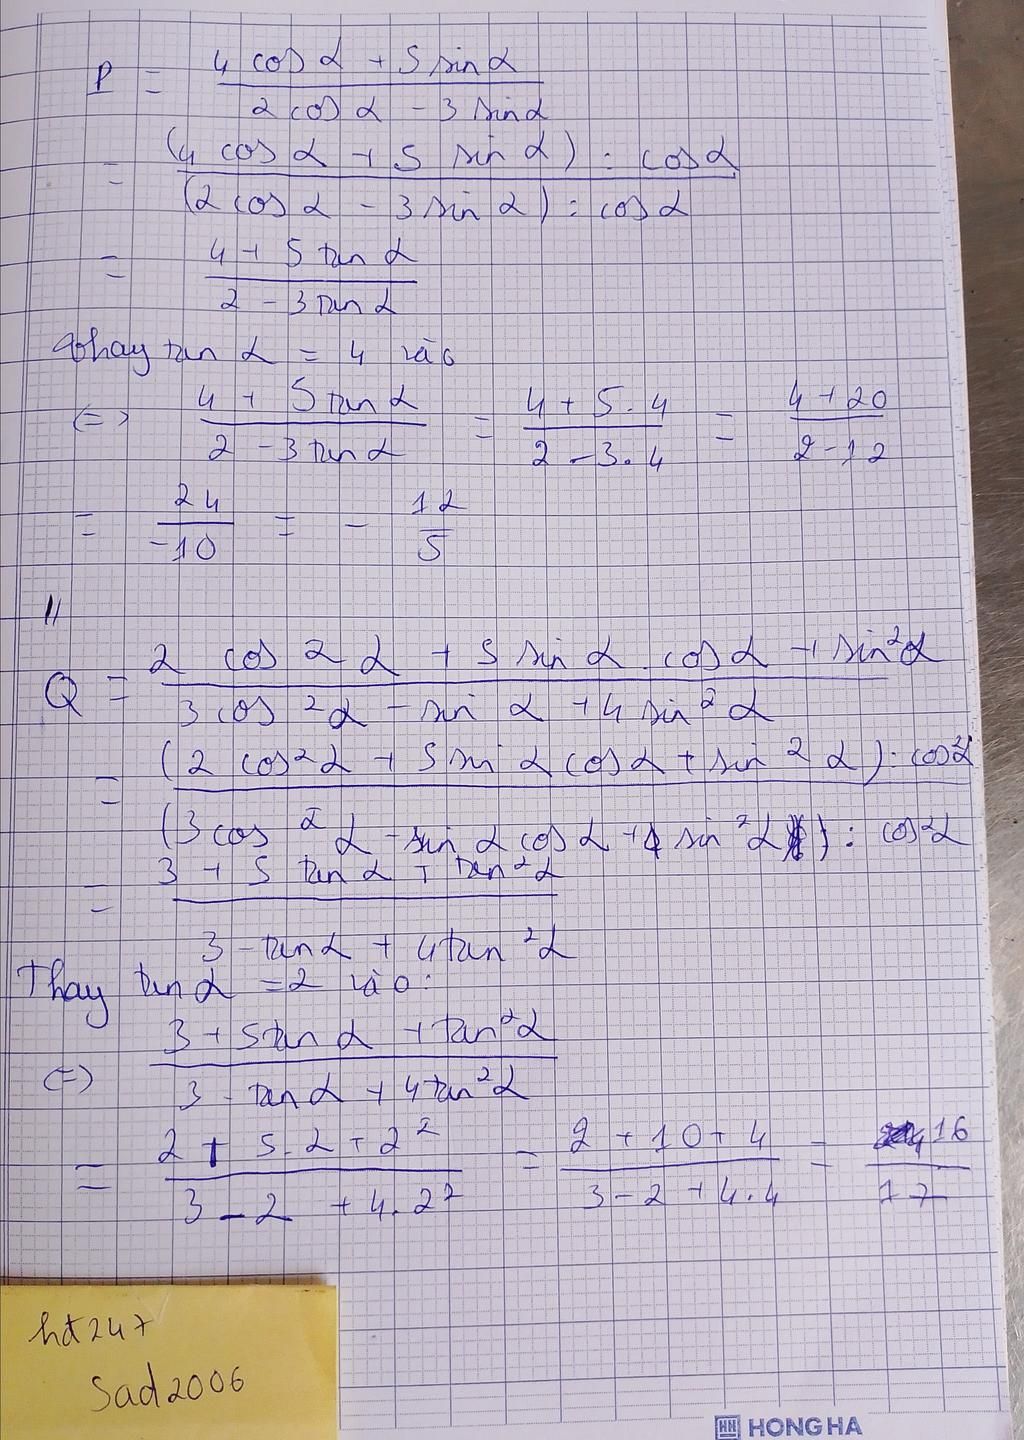 P = (4 cos α + 5 sin α) / (2 cos α - 3 sin α)
= ((4 cos α + 5 sin α) : cos α) / ((2 cos α - 3 sin α) : cos α)
= (4 + 5 tan α) / (2 - 3 tan α)
Thay tan α = 4 vào
<=> (4 + 5 tan α) / (2 - 3 tan α) = (4 + 5.4) / (2 - 3.4) = (4 + 20) / (2 - 12)
= 24 / -10 = - 12 / 5
Q = (2 cos² α + 5 sin α . cos α + sin² α) / (3 cos² α - sin α + 4 sin² α)
= ((2 cos² α + 5 sin α cos α + sin² α) : cos² α) / ((3 cos² α - sin α cos α + 4 sin² α) : cos² α)
= (3 + 5 tan α + tan² α) / (3 - tan α + 4 tan² α)
Thay tan α = 2 vào:
<=> (3 + 5 tan α + tan² α) / (3 - tan α + 4 tan² α)
= (2 + 5.2 + 2²) / (3 - 2 + 4.2²) = (2 + 10 + 4) / (3 - 2 + 4.4) = 16 / 17
hd247
Sad2006
HH HONG HA